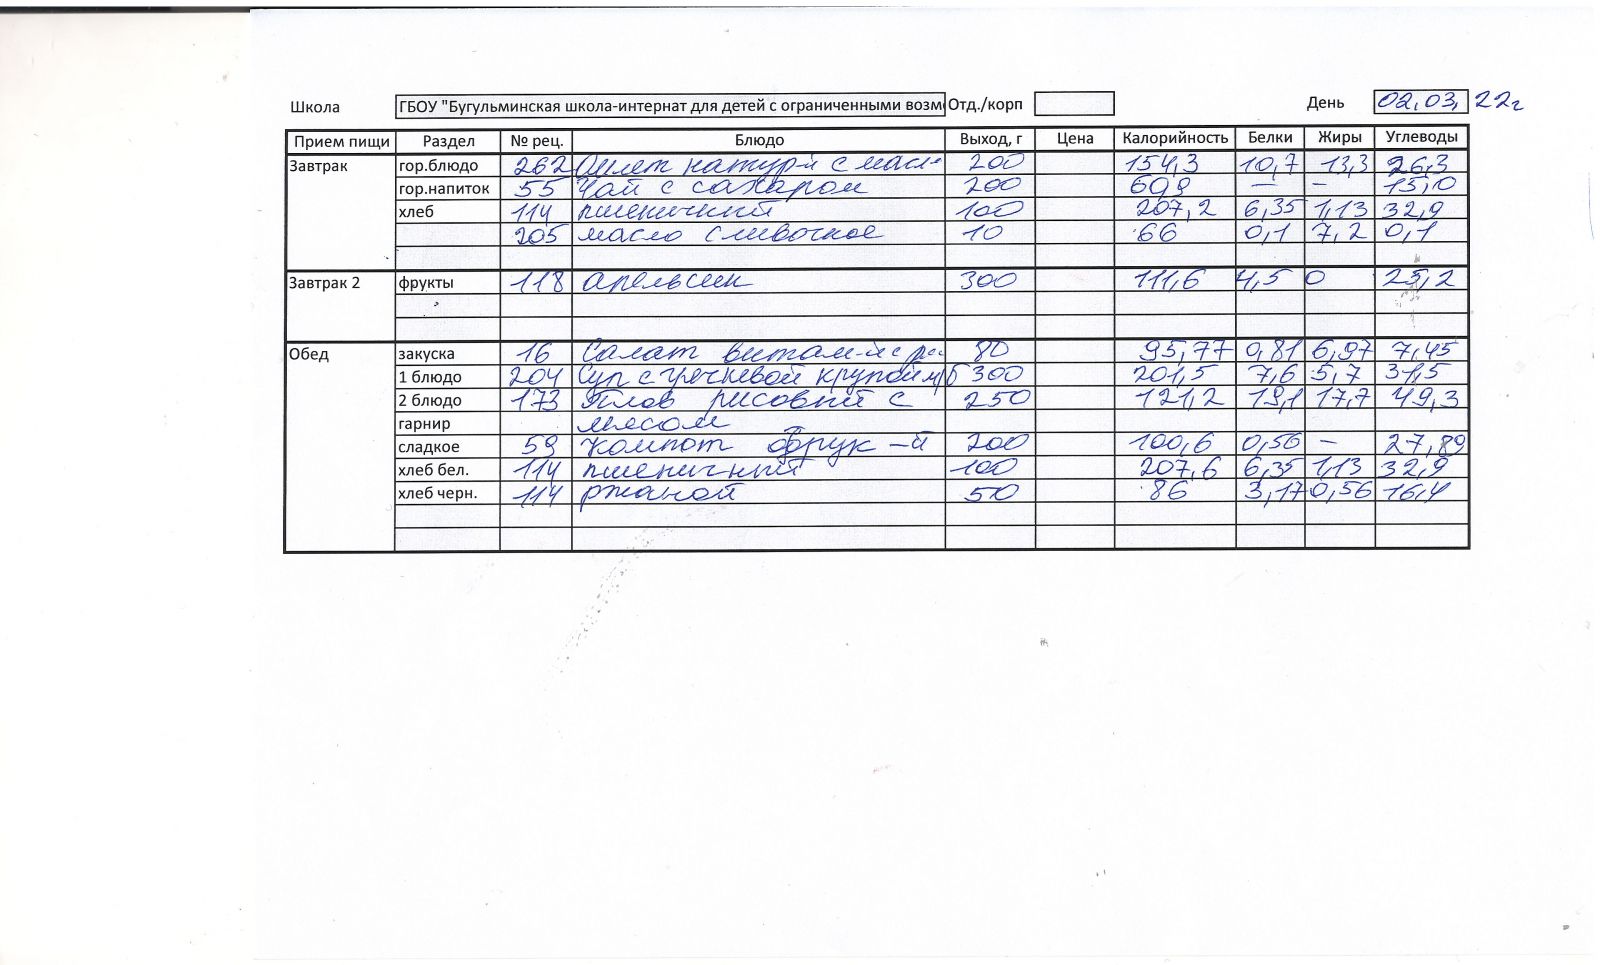 Школа ГБОУ "Бугульминская школа-интернат для детей с ограниченными возм Отд./корп День 02,03, 22г
Прием пищи Раздел № рец. Блюдо Выход, г Цена Калорийность Белки Жиры Углеводы
Завтрак гор.блюдо 262 Омлет натур-й с масл- 200 154,3 10,7 13,3 26,3
гор.напиток 55 Чай с сахаром 200 60 – – 15,10
хлеб 114 пшеничный 100 207,2 6,35 1,13 32,9
205 масло сливочное 10 66 0,1 7,2 0,1
Завтрак 2 фрукты 118 апельсин 300 111,6 4,5 0 25,2
Обед закуска 16 Салат витам-й с 80 95,77 0,81 6,97 7,45
1 блюдо 204 Суп с гречневой крупой м/б 300 201,5 7,6 5,7 31,5
2 блюдо 173 Плов рисовый с 250 121,2 19,1 17,7 49,3
гарнир мясом
сладкое 59 Компот фрук-й 200 100,6 0,56 – 27,89
хлеб бел. 114 пшеничный 100 207,6 6,35 1,13 32,9
хлеб черн. 114 ржаной 50 86 3,17 0,56 16,4